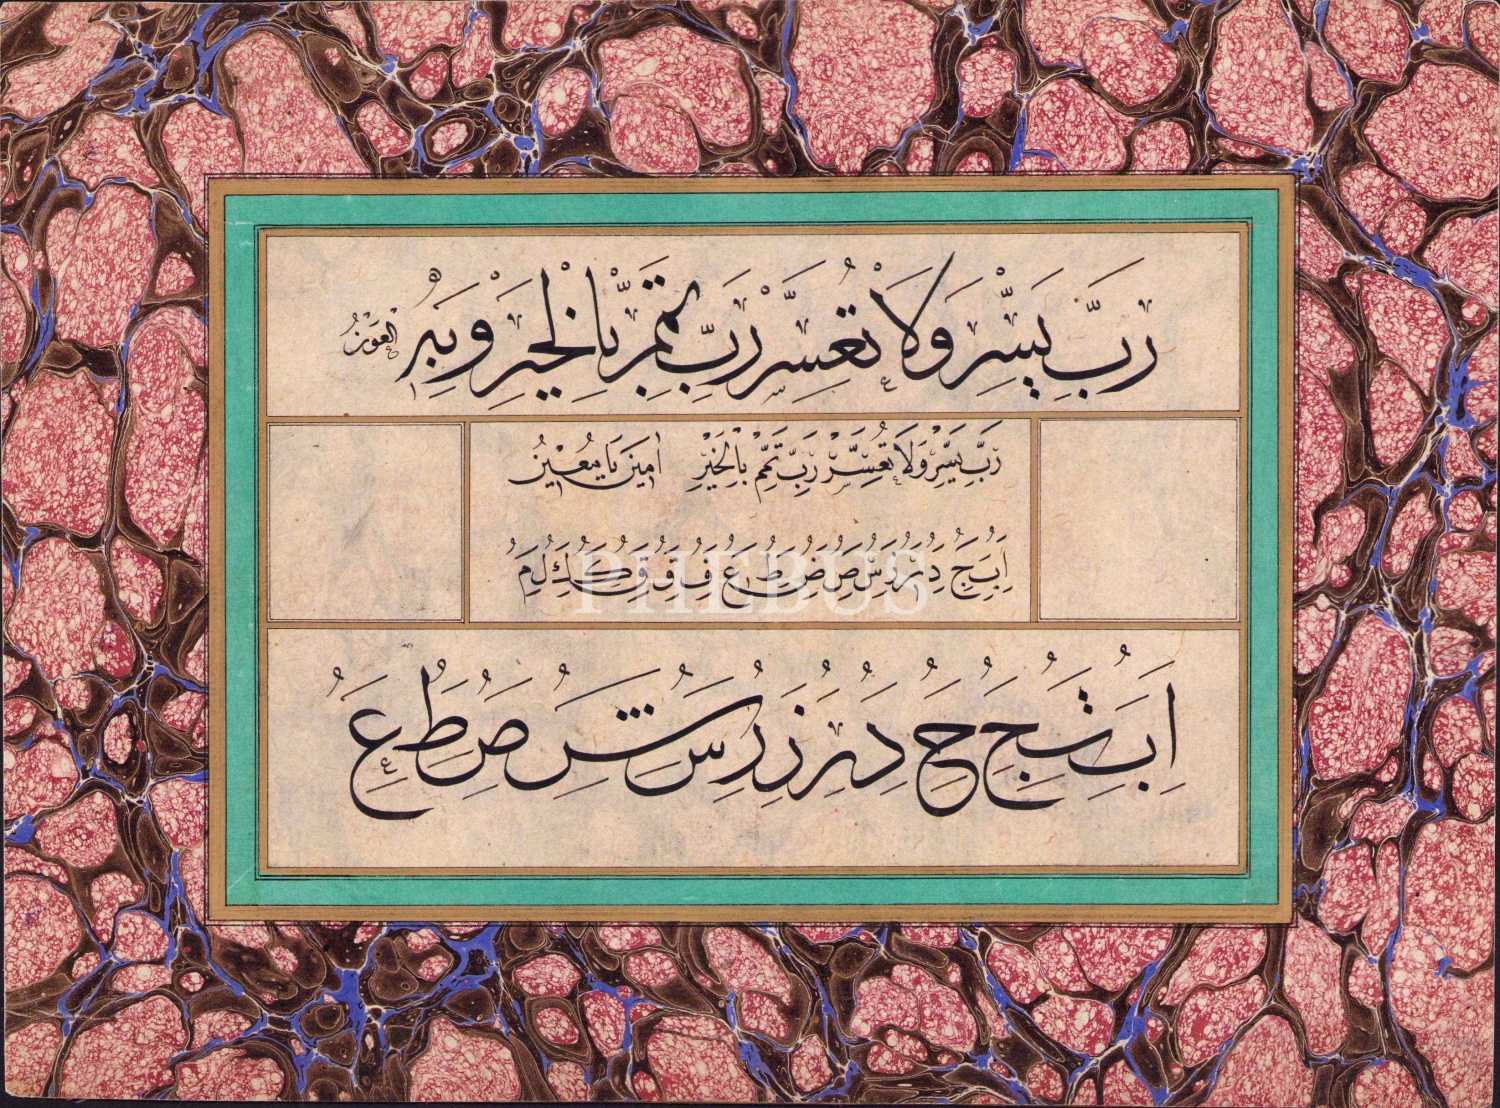 رَبِّ يَسِّرْ وَلَا تُعَسِّرْ رَبِّ تَمِّمْ بِالْخَيْرِ وَبِهِ الْعَوْنُ
رَبِّ يَسِّرْ وَلَا تُعَسِّرْ رَبِّ تَمِّمْ بِالْخَيْرِ اٰمِينَ يَا مُعِينُ
ا ب ج د ر س ص ض ط ع ف ق ك ل م
PHEBUS
ا ب ت ج ح د ر ز ر س ش ص ط ع